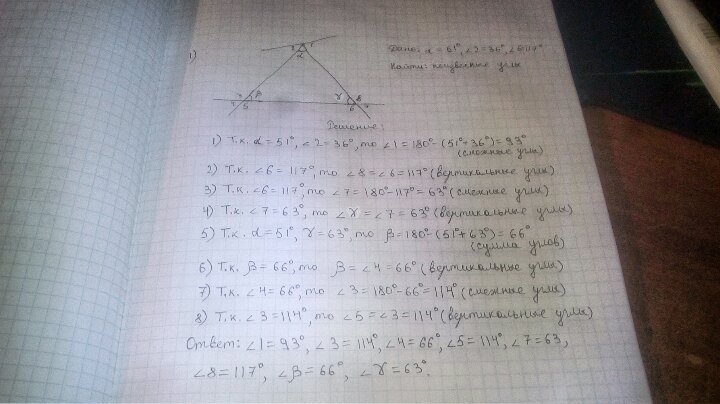 1)
2 1
α
3 β
4 5
γ 8
6 7
Дано: α = 51°, ∠2=36°, ∠6 117°
Найти: неизвестные углы
Решение:
1) Т.к. α=51°, ∠2=36°, то ∠1=180°-(51°+36°)=93°
(смежные углы)
2) Т.к. ∠6 = 117°, то ∠8=∠6=117° (вертикальные углы)
3) Т.к. ∠6=117°, то ∠7=180°-117°=63° (смежные углы)
4) Т.к. ∠7=63°, то ∠γ=∠7=63° (вертикальные углы)
5) Т.к. α=51°, γ=63°, то β=180°-(51°+63°)=66°
(сумма углов)
6) Т.к. β=66°, то β=∠4=66° (вертикальные углы)
7) Т.к. ∠4=66°, то ∠3=180°-66°=114° (смежные углы)
8) Т.к. ∠3=114°, то ∠5=∠3=114° (вертикальные углы)
Ответ: ∠1=93°, ∠3=114°, ∠4=66°, ∠5=114°, ∠7=63,
∠8=117°, ∠β=66°, ∠γ=63°.